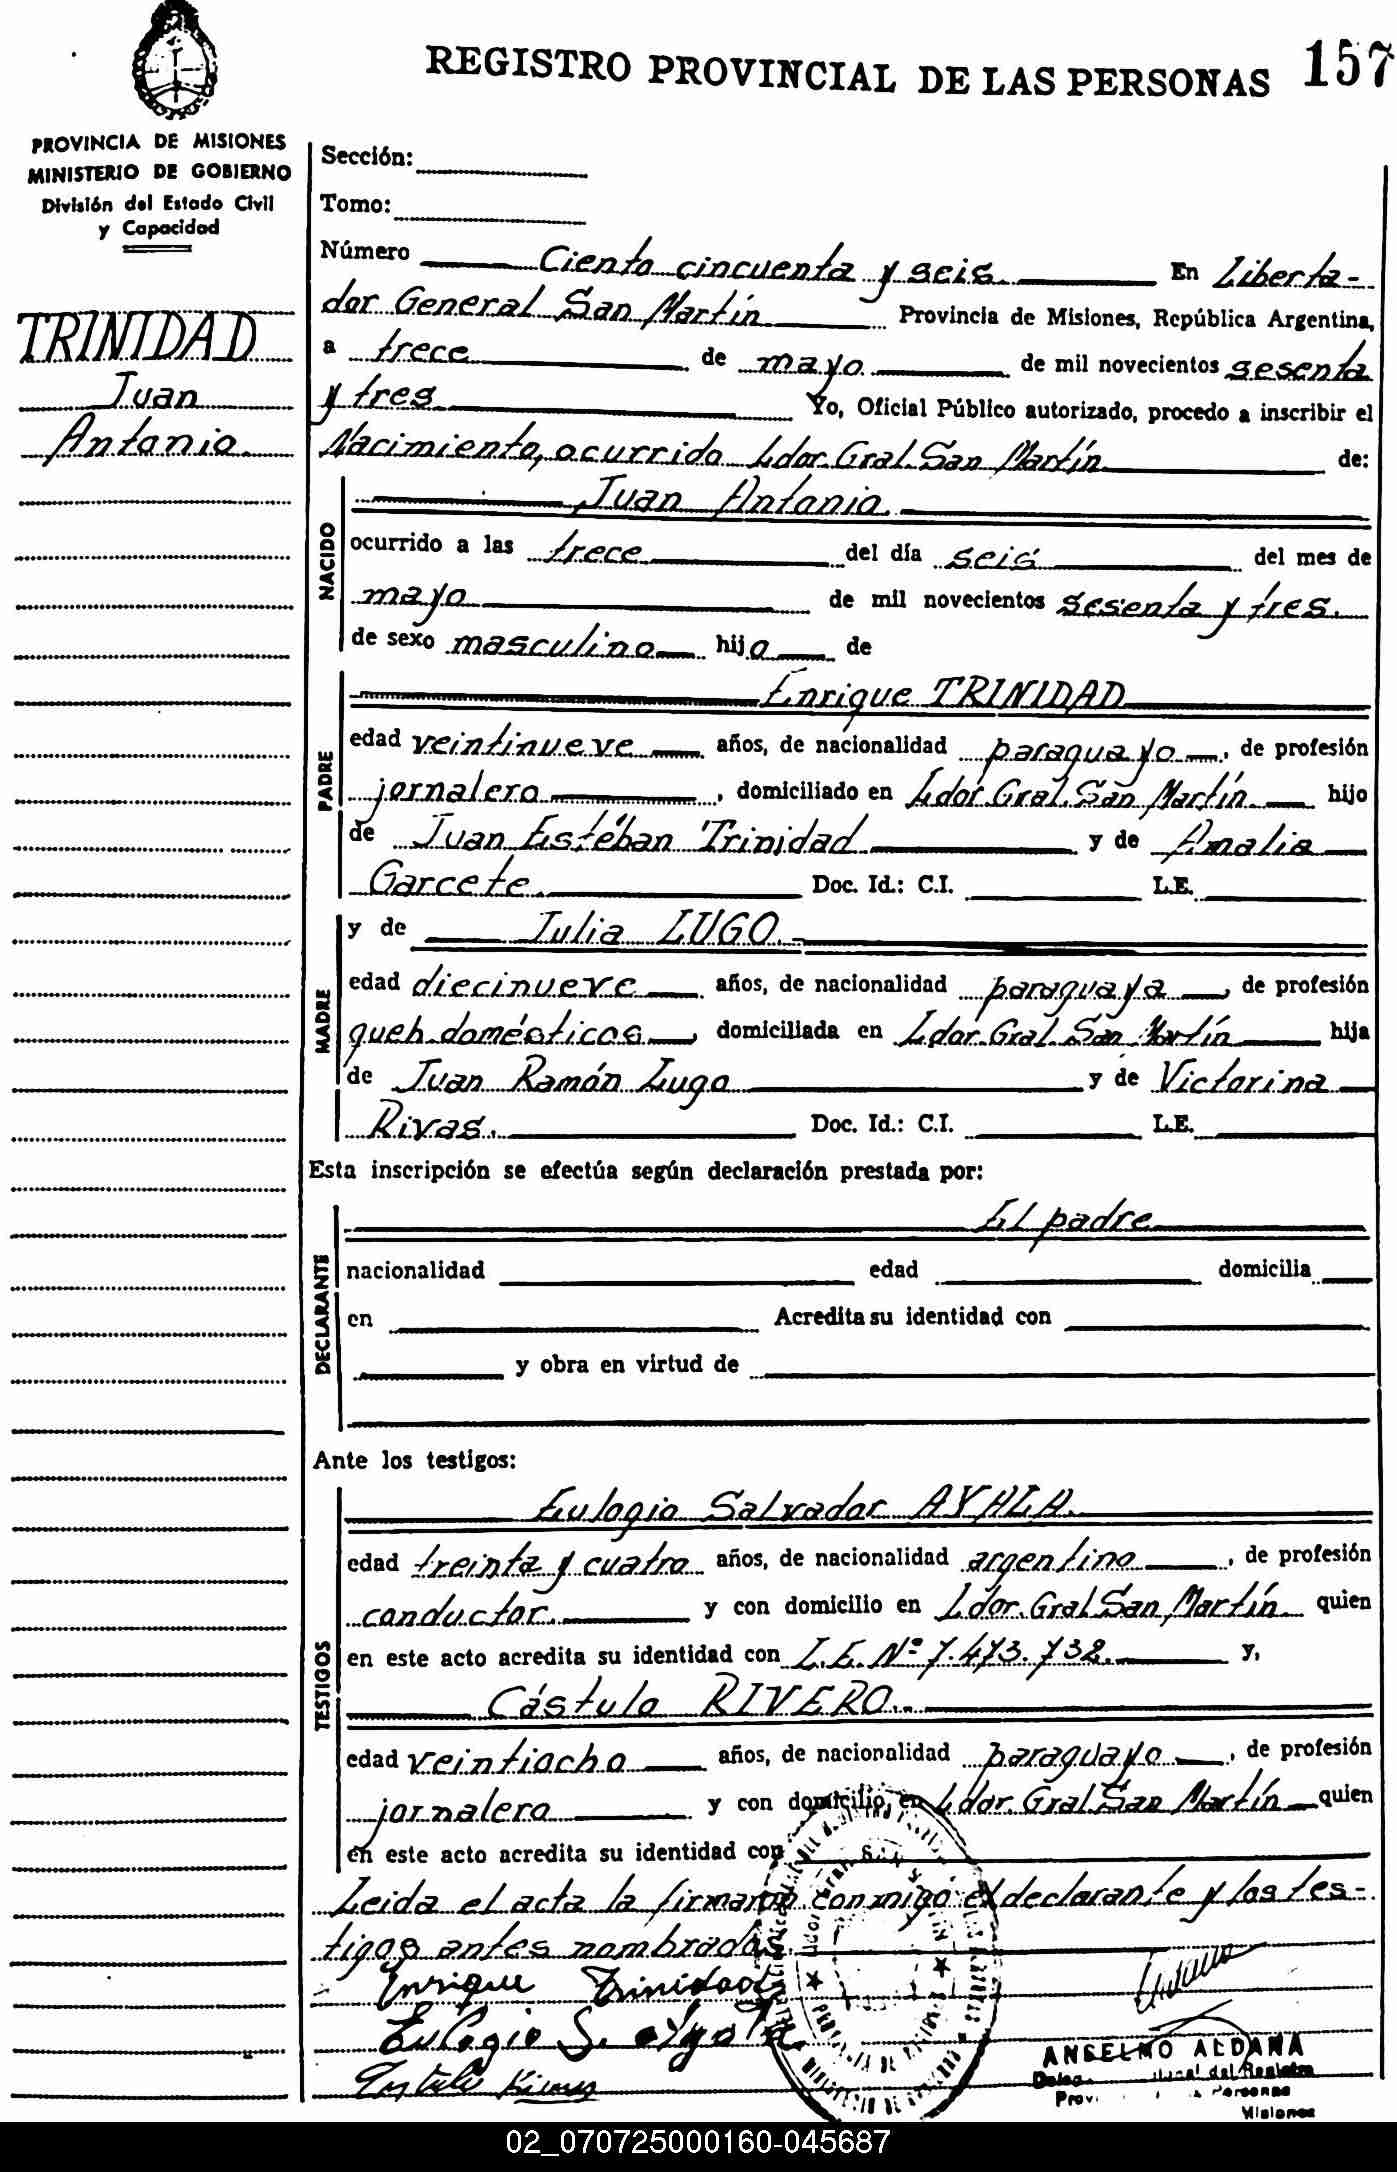 REGISTRO PROVINCIAL DE LAS PERSONAS 157
PROVINCIA DE MISIONES
MINISTERIO DE GOBIERNO
División del Estado Civil
y Capacidad
TRINIDAD
Juan
Antonio.
Sección:
Tomo:
Número Ciento cincuenta y seis. En Liberta-
dor General San Martín Provincia de Misiones, República Argentina,
a trece de mayo de mil novecientos sesenta
y tres Yo, Oficial Público autorizado, procedo a inscribir el
Nacimiento, ocurrido Ldor. Gral. San Martín de:
NACIDO
Juan Antonio
ocurrido a las trece del día seis del mes de
mayo de mil novecientos sesenta y tres.
de sexo masculino hijo de
PADRE
Enrique TRINIDAD
edad veintinueve años, de nacionalidad paraguayo, de profesión
jornalero, domiciliado en Ldor. Gral. San Martín hijo
de Juan Estéban Trinidad y de Amalia
Garcete. Doc. Id.: C.I. L.E.
MADRE
y de Julia LUGO.
edad diecinueve años, de nacionalidad paraguaya, de profesión
queh. domésticos, domiciliada en Ldor. Gral. San Martín hija
de Juan Ramón Lugo y de Victorina
Rivas. Doc. Id.: C.I. L.E.
Esta inscripción se efectúa según declaración prestada por:
DECLARANTE
El padre
nacionalidad edad domicilia
en Acredita su identidad con
y obra en virtud de
Ante los testigos:
TESTIGOS
Eulogio Salvador AYALA.
edad treinta y cuatro años, de nacionalidad argentino, de profesión
conductor. y con domicilio en Ldor. Gral. San Martín quien
en este acto acredita su identidad con L.E. Nº 7.473.732. y,
Cástulo RIVERO.
edad veintiocho años, de nacionalidad paraguayo, de profesión
jornalero y con domicilio en Ldor. Gral. San Martín quien
en este acto acredita su identidad con
Leida el acta la firmaron conmigo el declarante y los tes-
tigos antes nombrados.
Enrique Trinidad
Eulogio S. Ayala
ANSELMO ALDANA
del Registro
Personas
Misiones
02_070725000160-045687